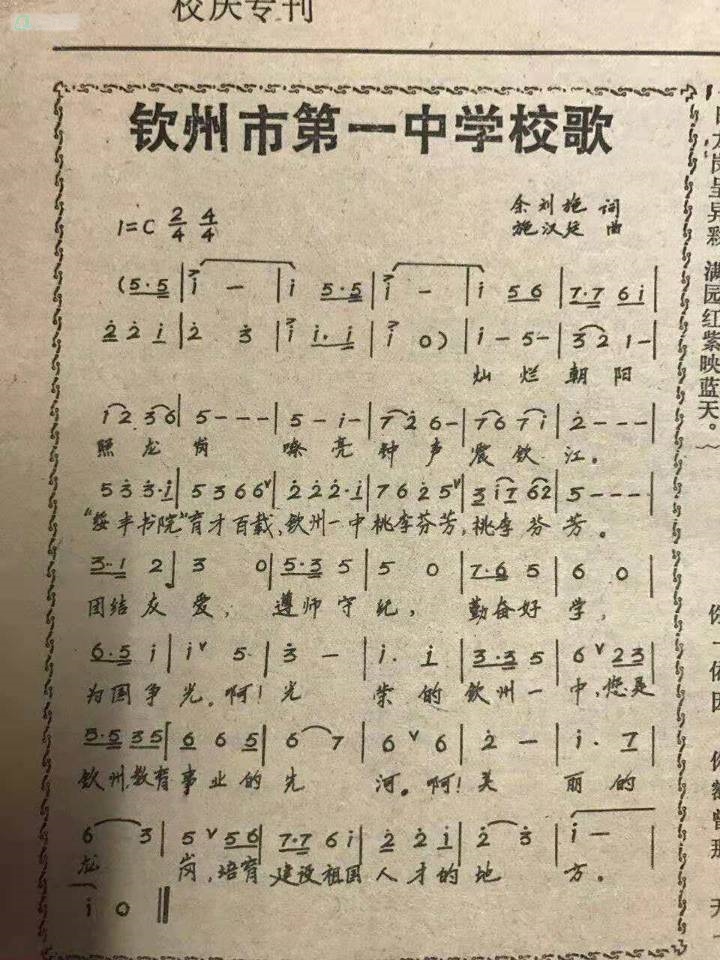 校庆专刊
钦州市第一中学校歌
1=C 2/4 4/4
余刘施 词
施汉廷 曲
(5·5 | i - | i 5·5 | i - | i 56 | 7·7 6i |
2 2 i | 2 3 | i i.i | i 0) | i - 5 - | 3 2 1 - |
灿烂朝阳
12 36 | 5 - - - | 5 - i - | 7 2 6 - | 76 7i | 2 - - - |
照龙岗 嘹亮钟声震钦江。
5 3 3·i | 5 3 6 6 | 2 2 2·i | 7 6 2 5 | 3 i7 62 | 5 - - - |
“绥丰书院”育才百载,钦州一中桃李芬芳,桃李芬芳。
3·1 2 | 3 0 | 5·3 5 | 5 0 | 7·6 5 | 6 0 |
团结友爱, 遵师守纪, 勤奋好学,
6·5 i | i 5· | 3 - | i. i | 3·3 5 | 6 23 |
为国争光。啊!光 荣的钦州一中,您是
5·5 35 | 6 6 5 | 6 7 | 6 6 | 2 - | i. 7 |
钦州教育事业的先 河。啊!美 丽的
6 3 | 5 56 | 7·7 6i | 2 2 i | 2 3 | i - |
龙 岗,培育建设祖国人才的地 方。
i 0 ‖
日
龙岗呈异彩
满园红紫映蓝天。
你
一
依
因
你
曾
那
天
一